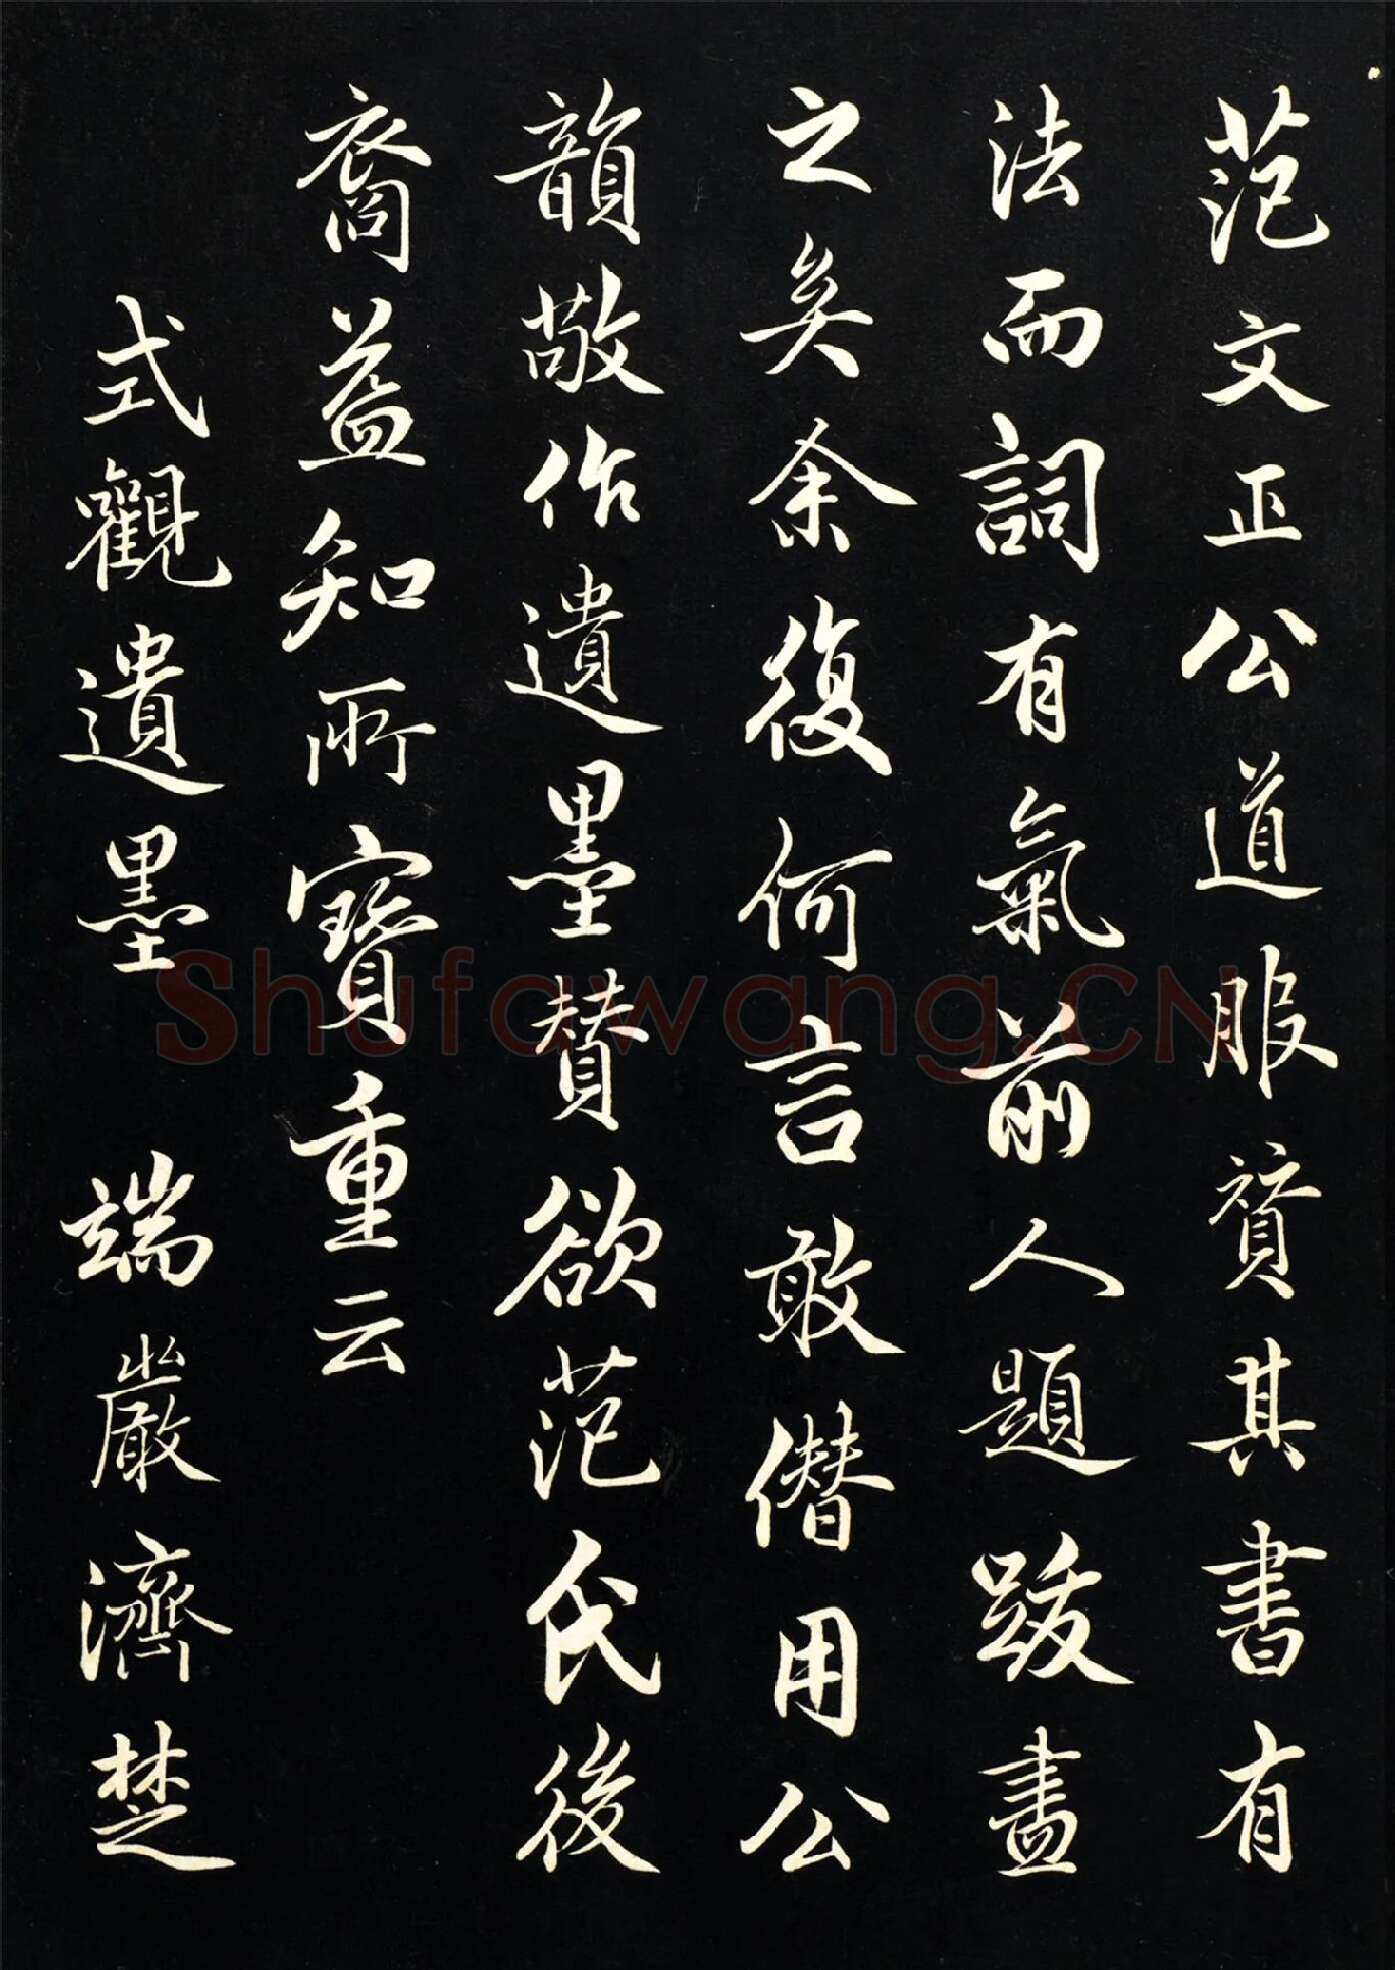 范文正公道服賛其書有
法而詞有氣前人題跋盡
之矣余復何言敢僭用公
韻敬作遺墨賛欲范氏後
裔益知所寶重云
式觀遺墨 端嚴濟楚
Shufawang.CN